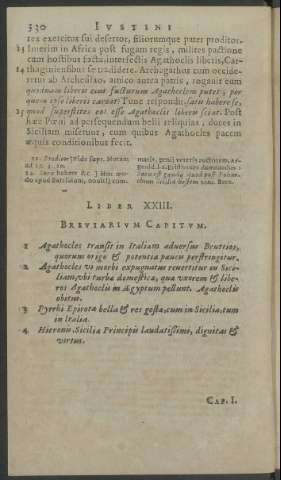 330 IVSTINI
rex exercitus sui desertor, filiorumque pater proditor.
23 Interim in Africa post fugam regis, milites pactione
cum hostibus facta, interfectis Agathoclis liberis, Car-
24 thaginiensibus se tradidere. Archagathus cum occide-
retur ab Archesilao, amico antea patris, rogavit eum
quidnam liberis eius facturum Agathoclem putet, per
quem ipse liberis careat? Tunc respondit, satis habere se,
25 quod superstites eos esse Agathoclis liberis sciat. Post
hæc Pœni ad persequendum belli reliquias, duces in
Siciliam miserunt, cum quibus Agathocles pacem
æquis conditionibus fecit.
LIBER XXIII.
BREVIARIVM CAPITVM.
1 Agathocles transit in Italiam adversus Bruttios,
quorum origo & potentia paucis perstringitur.
2 Agathocles vi morbi expugnatus revertitur in Sici-
liam, ubi turba domestica, qua uxorem & libe-
ros Agathoclis in Ægyptum pellunt. Agathoclis
obitus.
3 Pyrrhi Epirotæ bella & res gestæ, cum in Sicilia, tum
in Italia.
4 Hieronis, Siciliæ Principis laudatissimi, dignitas &
virtus.
CAP. I.